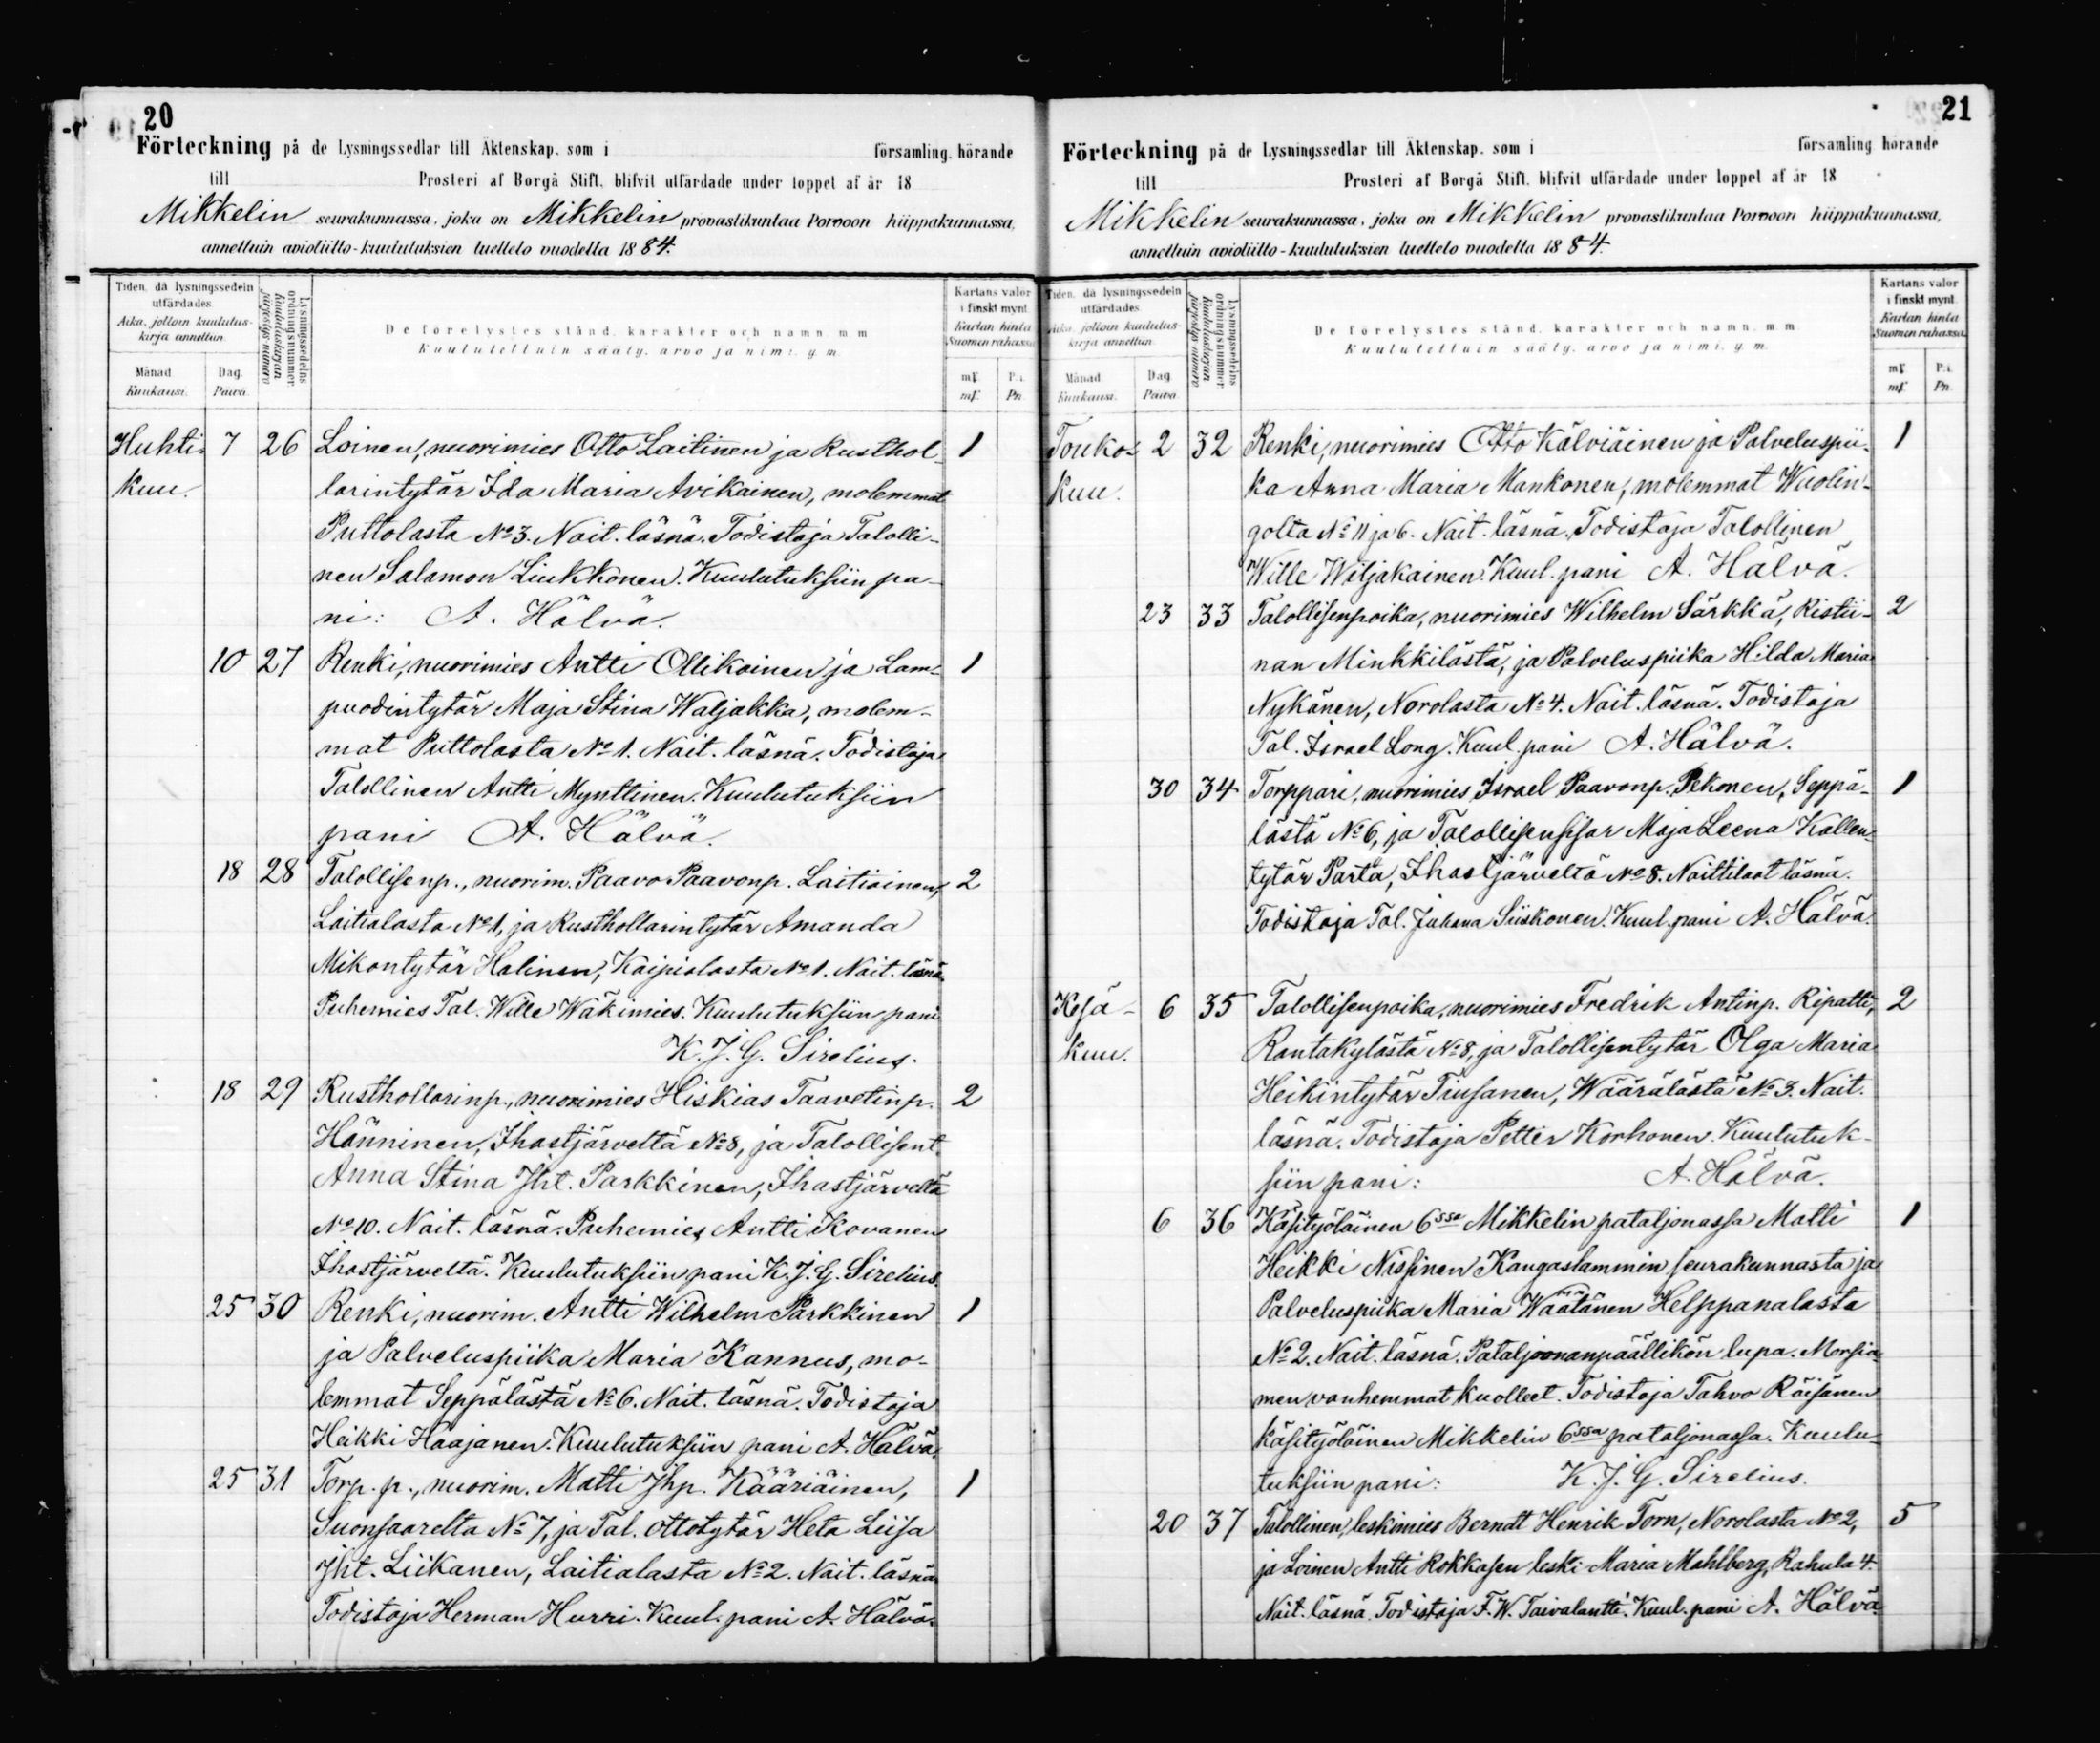 20
Förteckning på de Lysningssedlar till Äktenskap. som i församling. hörande
till Prosteri af Borgå Stift, blifvit utfärdade under loppet af år 18
Mikkelin seurakunnassa, joka on Mikkelin provastikuntaa Porvoon hiippakunnassa,
annettuin avioliitto-kuulutuksien luettelo vuodelta 1884.
Tiden, då lysningssedeln utfärdades.
Aika, jolloin kuulutus-kirja annettiin.
Månad Kuukausi.
Dag. Päivä.
Lysningssedelns ordningsnummer.
Kuulutuskirjan järjestys numero
De förelystes stånd, karakter och namn. m. m
Kuulutettuin sääty, arvo ja nimi. y. m.
Kartans valör i finskt mynt.
Kartan hinta Suomen rahassa
mf. P:i.
mf. Pn.
Huhti- 7 26 Loinen, nuorimies Otto Laitinen ja Rusthol- 1
kuu. larintytär Ida Maria Avikainen, molemmat
Puttolasta No 3. Nait. läsnä. Todistaja Talolli-
nen Salamon Liukkonen. Kuulutuksiin pa-
ni: A. Hälvä.
10 27 Renki, nuorimies Antti Ollikainen ja Lam- 1
puodintytär Maja Stina Waljakka, molem-
mat Puttolasta No 1. Nait. läsnä. Todistaja
Talollinen Antti Mynttinen. Kuulutuksiin
pani A. Hälvä.
18 28 Talollisenp., nuorim. Paavo Paavonp. Laitiainen, 2
Laitialasta No 1, ja Rusthollarintytär Amanda
Mikontytär Halinen, Kaipialasta No 1. Nait. läsnä.
Puhemies Tal. Wille Wäkimies. Kuulutuksiin pani
K. J. G. Sirelius.
18 29 Rusthollarinp., nuorimies Hiskias Taavetinp. 2
Hänninen, Ihastjärveltä No 8, ja Talollisent.
Anna Stina Jht. Parkkinen, Ihastjärveltä
No 10. Nait. läsnä. Puhemies Antti Kovanen
Ihastjärveltä. Kuulutuksiin pani K. J. G. Sirelius.
25 30 Renki, nuorim. Antti Wilhelm Parkkinen 1
ja Palveluspiika Maria Kannus, mo-
lemmat Seppälästä No 6. Nait. läsnä. Todistaja
Heikki Haajanen. Kuulutuksiin pani A. Hälvä.
25 31 Torp. p., nuorim. Matti Jhp. Kääriäinen, 1
Suonsaarelta No 7, ja Tal. ottotytär Heta Liisa
Jht. Liikanen, Laitialasta No 2. Nait. läsnä
Todistaja Herman Hurri. Kuul. pani A. Hälvä.
21
Förteckning på de Lysningssedlar till Äktenskap. som i församling hörande
till Prosteri af Borgå Stift, blifvit utfärdade under loppet af år 18
Mikkelin seurakunnassa, joka on Mikkelin provastikuntaa Porvoon hiippakunnassa,
annettuin avioliitto-kuulutuksien luettelo vuodelta 1884.
Tiden, då lysningssedeln utfärdades
Aika, jolloin kuulutus-kirja annettiin
Månad Kuukausi.
Dag Päivä
Lysningssedelns ordningsnummer
Kuulutuskirjan järjestys numero
De förelystes stånd, karakter och namn. m. m
Kuulutettuin sääty, arvo ja nimi. y. m.
Kartans valör i finskt mynt.
Kartan hinta Suomen rahassa.
mf. P:i.
mf. Pn.
Touko- 2 32 Renki, nuorimies Otto Kälviäinen ja Palveluspii- 1
kuu. ka Anna Maria Mankonen, molemmat Wuolin-
golta No 11 ja 6. Nait. läsnä. Todistaja Talollinen
Wille Wiljakainen. Kuul. pani A. Hälvä.
23 33 Talollisenpoika, nuorimies Wilhelm Särkkä, Ristii- 2
nan Minkkilästä, ja Palveluspiika Hilda Maria
Nykänen, Norolasta No 4. Nait. läsnä. Todistaja
Tal. Israel Long. Kuul. pani A. Hälvä.
30 34 Torppari, nuorimies Israel Paavonp. Pekonen, Seppä- 1
lästä No 6, ja Talollisensisar Maja Leena Kallen-
tytär Parta, Ihastjärveltä No 8. Naittilaat läsnä.
Todistaja Tal. Juhana Siiskonen. Kuul. pani A. Hälvä.
Kesä- 6 35 Talollisenpoika, nuorimies Fredrik Antinp. Ripatti, 2
kuu. Rantakylästä No 8, ja Talollisentytär Olga Maria
Heikintytär Tiusanen, Wäärälästä No 3. Nait.
läsnä. Todistaja Petter Korhonen. Kuulutuk-
siin pani: A. Hälvä.
6 36 Käsityöläinen 6ssa Mikkelin pataljonassa Matti 1
Heikki Nissinen Kangaslammin seurakunnasta ja
Palveluspiika Maria Väätänen Helppanalasta
No 2. Nait. läsnä. Pataljoonanpäällikön lupa. Morsia-
men vanhemmat kuolleet. Todistaja Tahvo Räisänen
käsityöläinen Mikkelin 6ssa pataljonassa. Kuulu-
tuksiin pani: K. J. G. Sirelius.
20 37 Talollinen, leskimies Berndt Henrik Torn, Norolasta No 2, 5
ja Loinen Antti Kokkasen leski Maria Mahlberg, Rahula 4.
Nait. läsnä. Todistaja F. W. Taivalantti. Kuul. pani A. Hälvä.